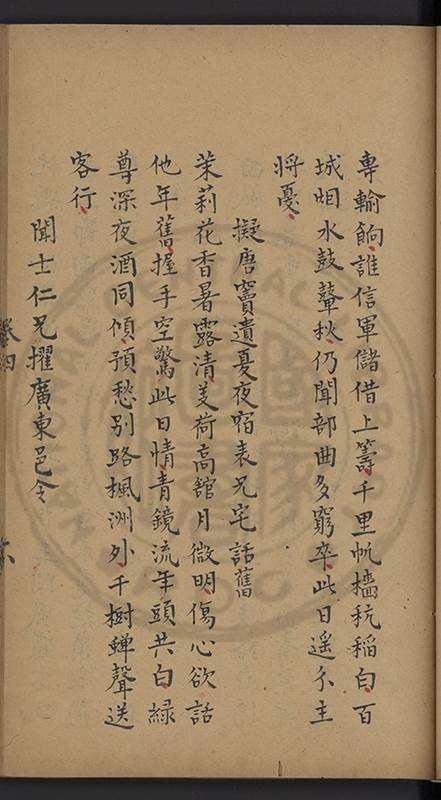 專輸餉誰信軍儲借上籌千里帆檣秔稻白百
城烟水鼓鼙秋仍聞部曲多窮卒此日遥分主
將憂
擬唐竇遺夏夜宿表兄宅話舊
茉莉花香暑露清芰荷高舘月微明傷心欲話
他年舊握手空驚此日情青鏡流年頭共白緑
尊深夜酒同傾預愁别路楓洲外千樹蟬聲送
客行
聞士仁兄擢廣東邑令
卷四